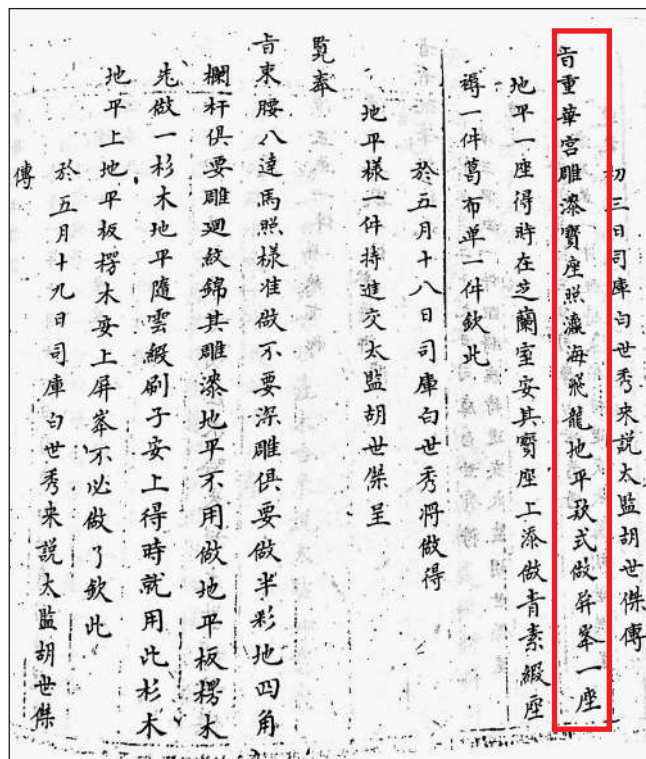 初三日司庫白世秀来説太監胡世傑傳
旨重華宮雕漆寳座照瀛海飛龍地平欵式做屏峯一座
地平一座得時在芝蘭室安其寳座上添做青素緞座
褥一件葛布单一件欽此
於五月十八日司庫白世秀將做得
地平樣一件持進交太監胡世傑呈
覧奉
旨束腰八達馬照樣准做不要深雕俱要做半彩地四角
欄杆俱要雕廻紋錦其雕漆地平不用做地平板楞木
先做一杉木地平隨雲緞刷子安上得時就用此杉木
地平上地平板楞木安上屏峯不必做了欽此
於五月十九日司庫白世秀来説太監胡世傑
傳